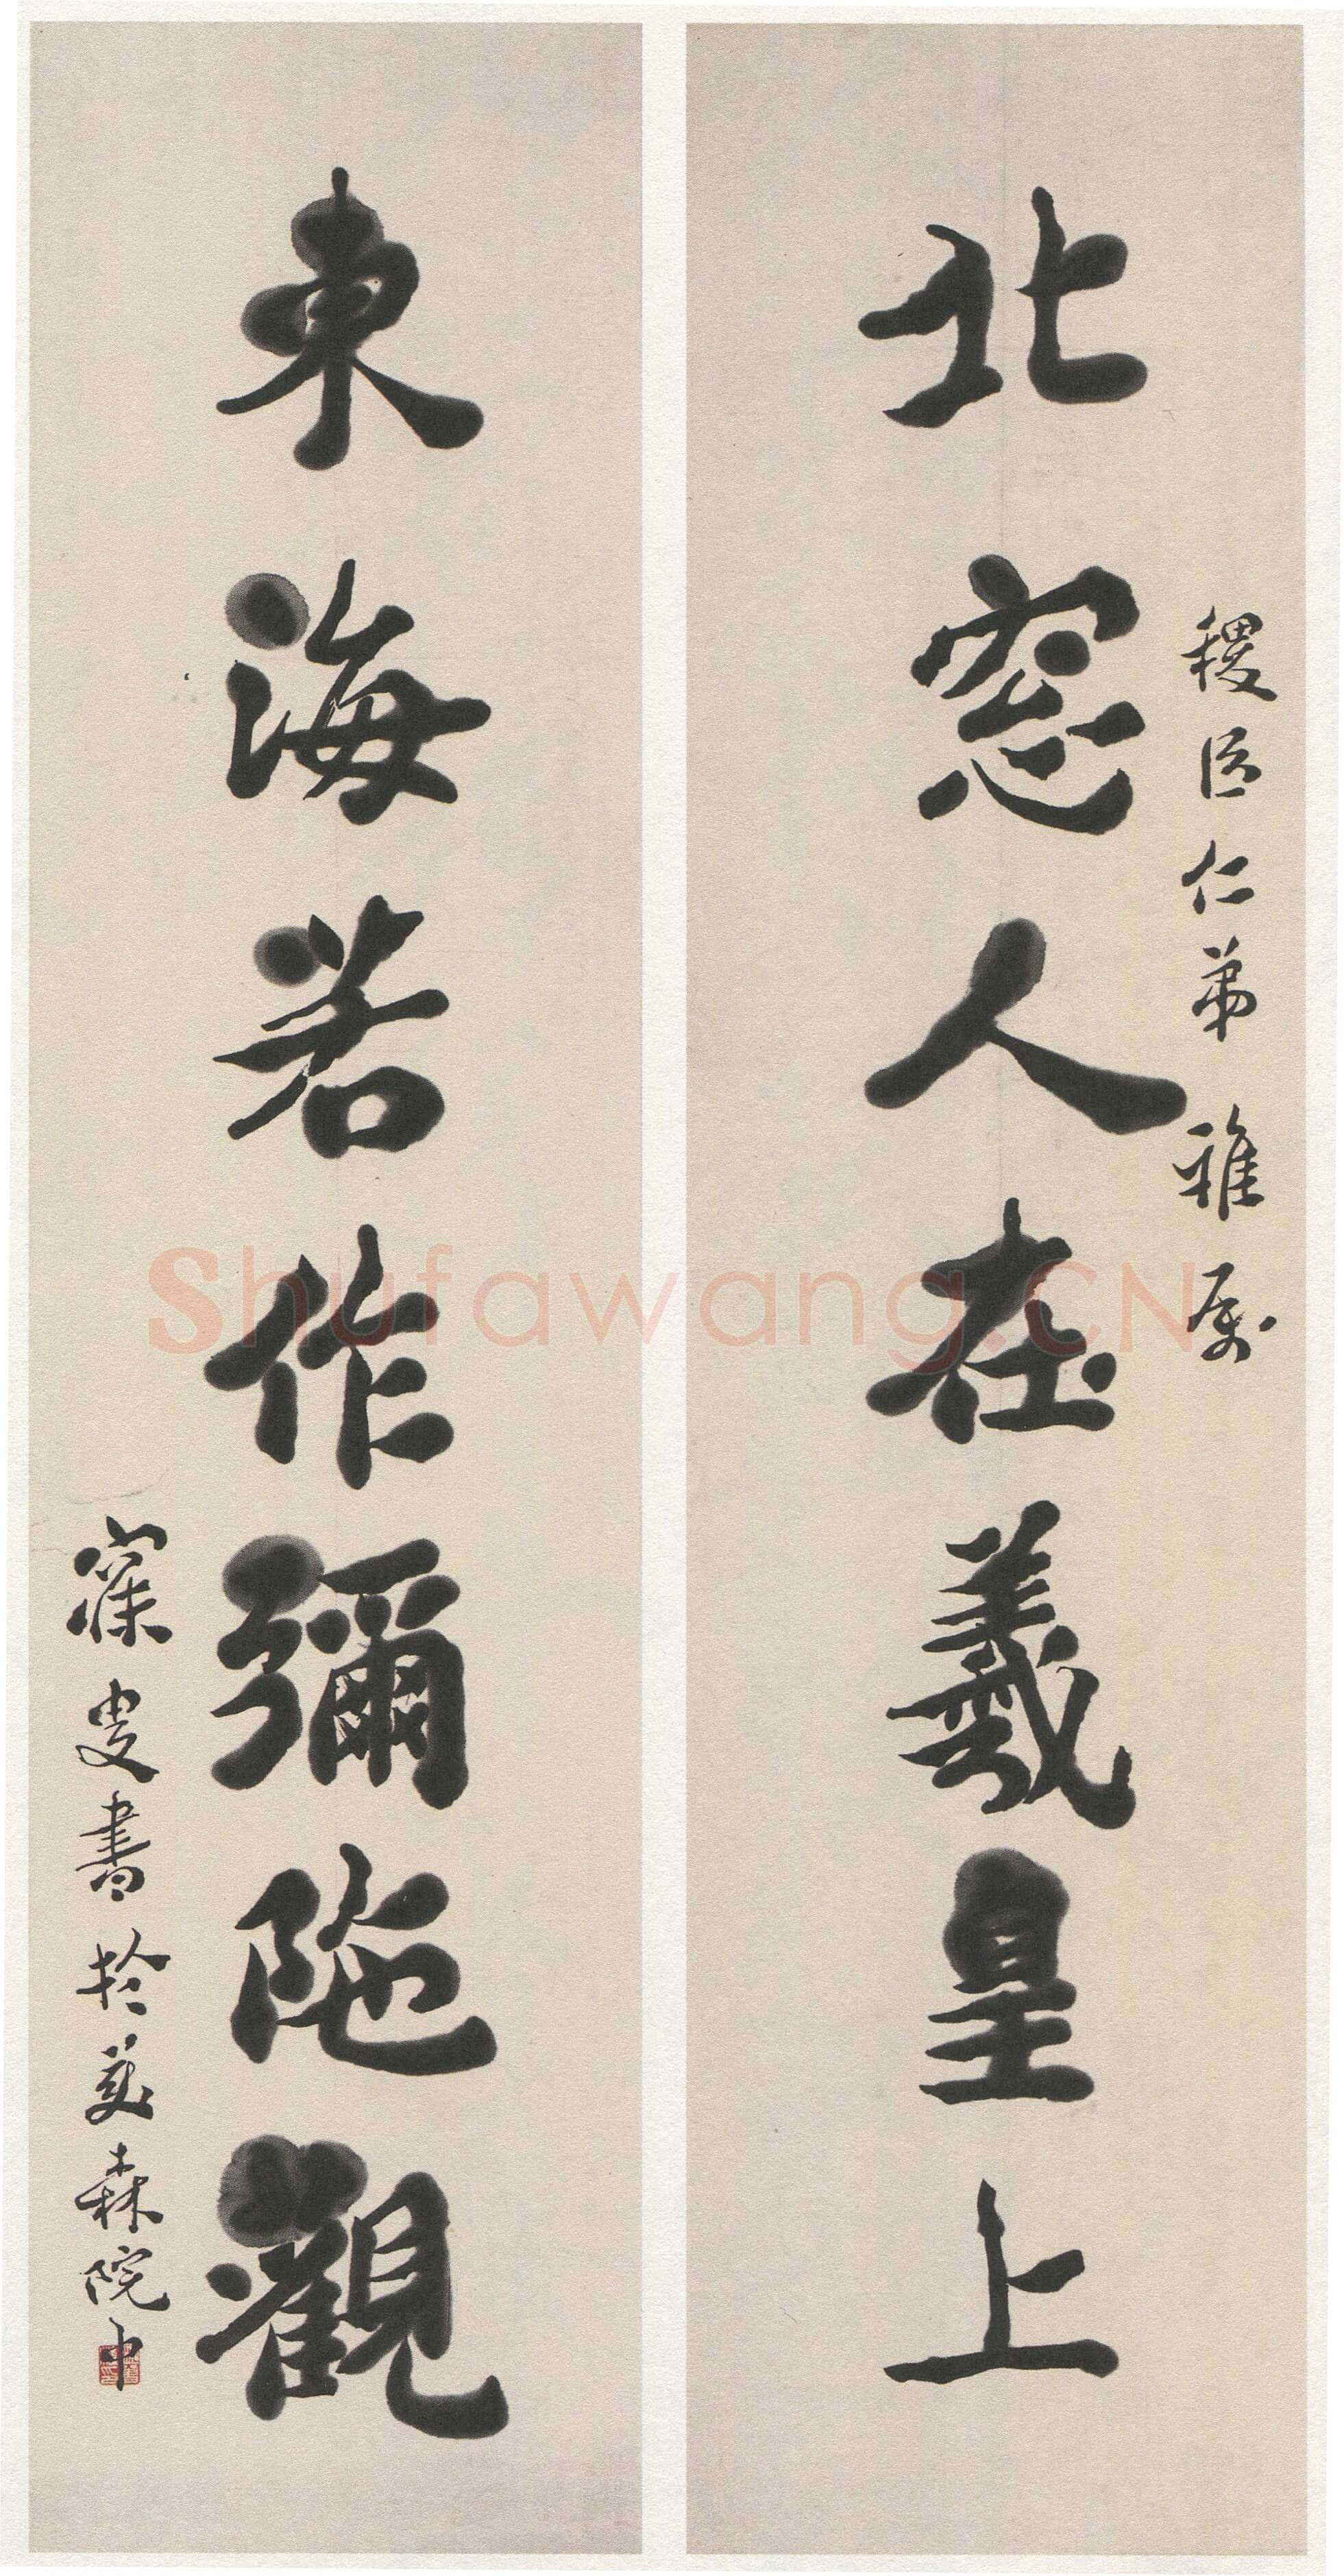 稷臣仁弟雅属
北窓人在羲皇上
東海若作彌陁觀
寐叟書於美森院中
Shufawang.CN